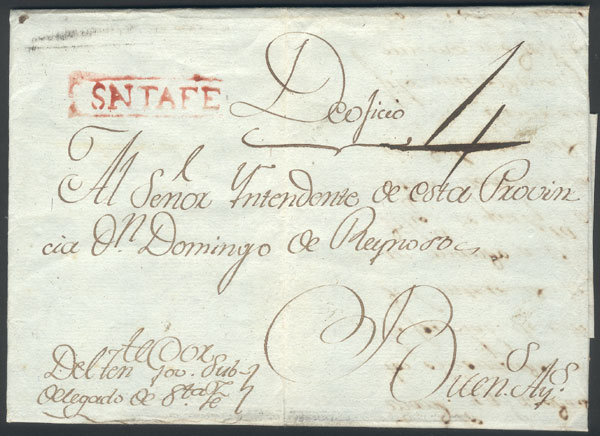 SNTAFE
De oficio 4
Al Señor Yntendente de esta Provin
cia Dn. Domingo de Reynoso
Buens. Ays.
Del Ten
delegado de Sta Fe